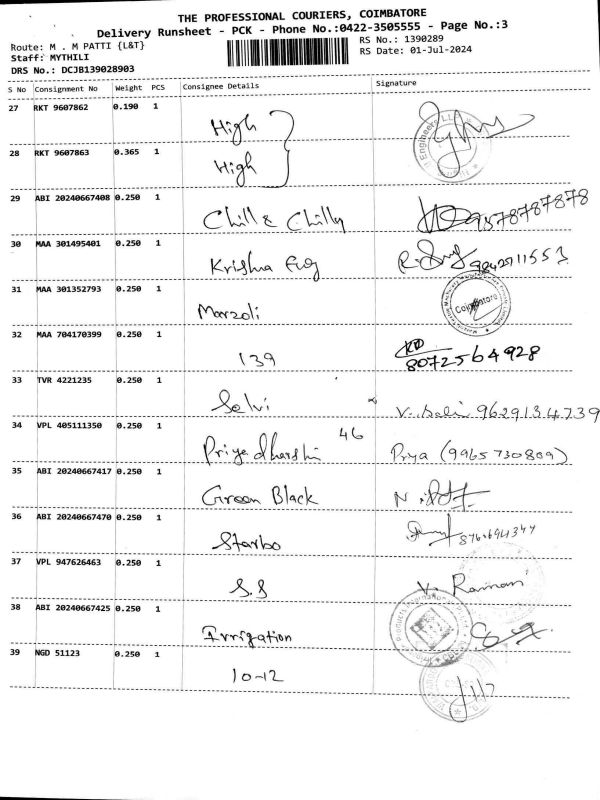 THE PROFESSIONAL COURIERS, COIMBATORE
Delivery Runsheet - PCK - Phone No.:0422-3505555 - Page No.:3
Route: M . M PATTI {L&T}
RS No.: 1390289
Staff: MYTHILI
RS Date: 01-Jul-2024
DRS No.: DCJB139028903
S No Consignment No Weight PCS Consignee Details Signature
27 RKT 9607862 0.190 1 High
28 RKT 9607863 0.365 1 High
29 ABI 20240667408 0.250 1 Chill & Chilly 9578787878
30 MAA 301495401 0.250 1 Krishna Eng 9842711553
31 MAA 301352793 0.250 1 Marzoli Coimbatore
32 MAA 704170399 0.250 1 139 8072564928
33 TVR 4221235 0.250 1 Selvi 9629134739
34 VPL 405111350 0.250 1 Priyadharshi 46 Prya (9965730809)
35 ABI 20240667417 0.250 1 Green Black
36 ABI 20240667470 0.250 1 Starbo
37 VPL 947626463 0.250 1 S.S V. Raman
38 ABI 20240667425 0.250 1 Irrigation
39 NGD 51123 0.250 1 10-12